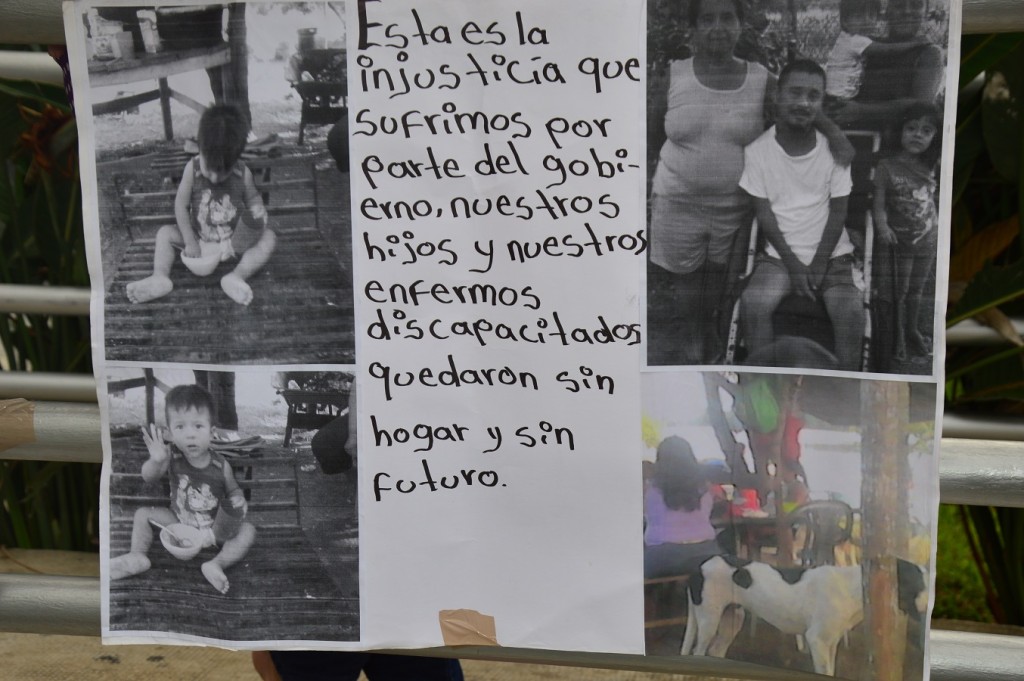 Esta es la
injusticia que
sufrimos por
parte del gobi-
erno, nuestros
hijos y nuestros
enfermos
discapacitados
quedaron sin
hogar y sin
futuro.